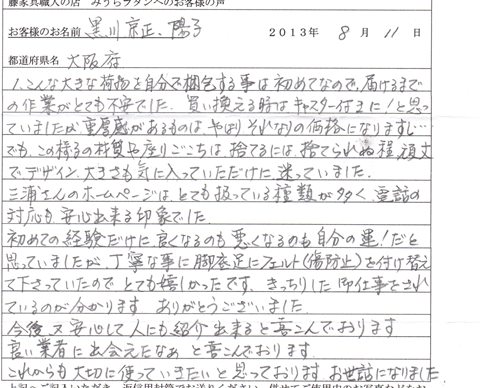 籐家具職人の店　みうらラタンへのお客様の声
お客様のお名前　黒川 京正、陽子　2013年 8月 11日
都道府県名　大阪府
1. こんな大きな荷物を自分で梱包する事は初めてなので、届けるまで
の作業がとても不安でした。買い換える時はキャスター付きに！と思っ
ていましたが、重厚感があるものは、やはりそれなりの価格になりますし…
でも、この椅子の材質や座りごこちは、捨てるには、捨てられぬ程、頑丈
でデザイン、大きさも気に入っていただけに、迷っていました。
三浦さんのホームページは、とても扱っている種類が多く、電話の
対応も、安心出来る印象でした。
初めての経験だけに良くなるのも悪くなるのも自分の運！だと
思っていましたが、丁寧な事に脚底足にフェルト（傷防止）を付け替え
て下さっていたので とても嬉しかったです。きっちりした御仕事をされ
ているのが分かります　ありがとうございました
今後、又安心して人にも紹介出来ると喜こんでおります
良い業者に出会えたなぁ と喜こんでおります。
これからも大切に使っていきたいと思っております。お世話になりました。